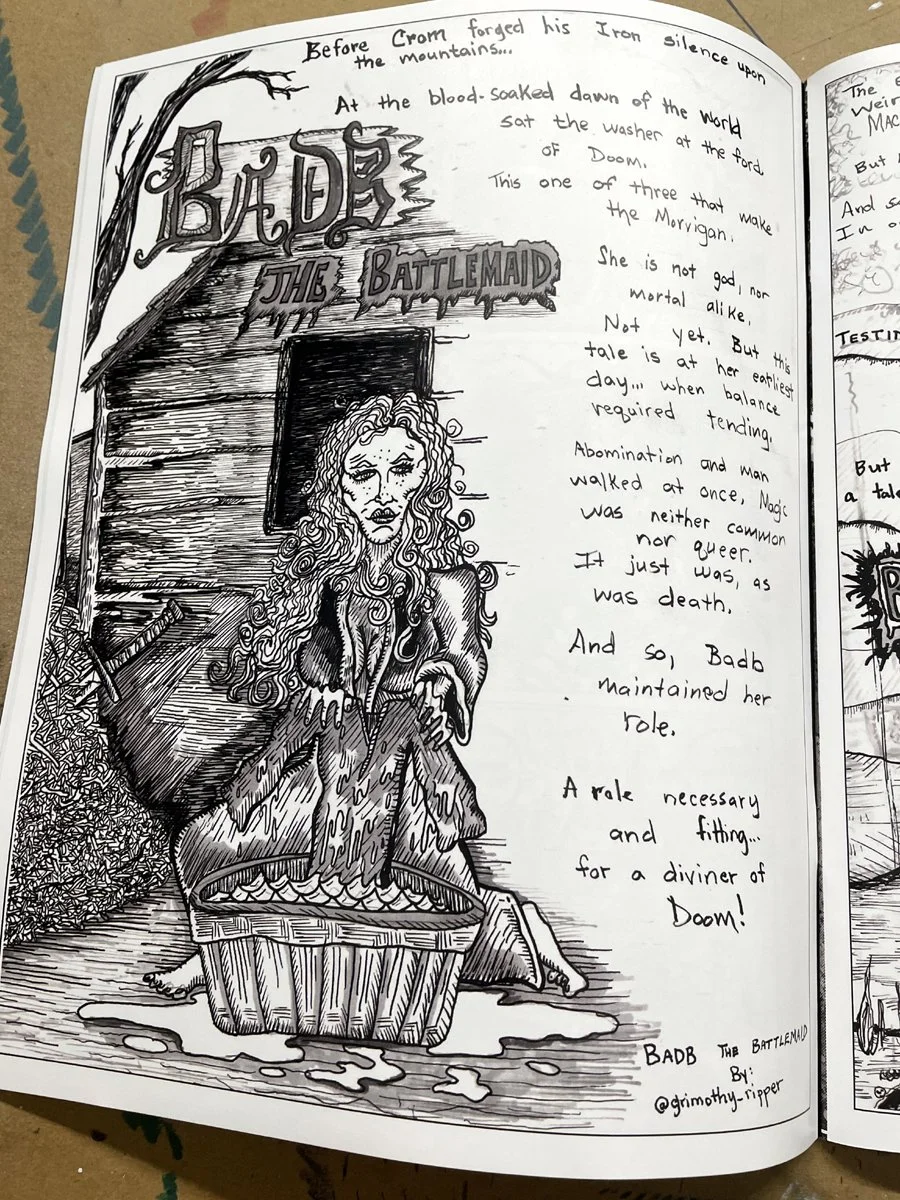 Before Crom forged his Iron silence upon
the mountains...
At the blood-soaked dawn of the world
sat the washer at the ford
of Doom.
This one of three that make
the Morrigan.
BADB
THE BATTLEMAID
She is not god, nor
mortal alike.
Not yet. But this
tale is at her earliest
day... when balance
required tending.
Abomination and man
walked at once, Magic
was neither common
nor queer.
It just was, as
was death.
And so, Badb
maintained her
role.
A role necessary
and fitting...
for a diviner of
Doom!
BADB THE BATTLEMAID
By:
@grimothy_ripper
The
Weir
MAC
But
And s
In o
TESTIN
But
a tale